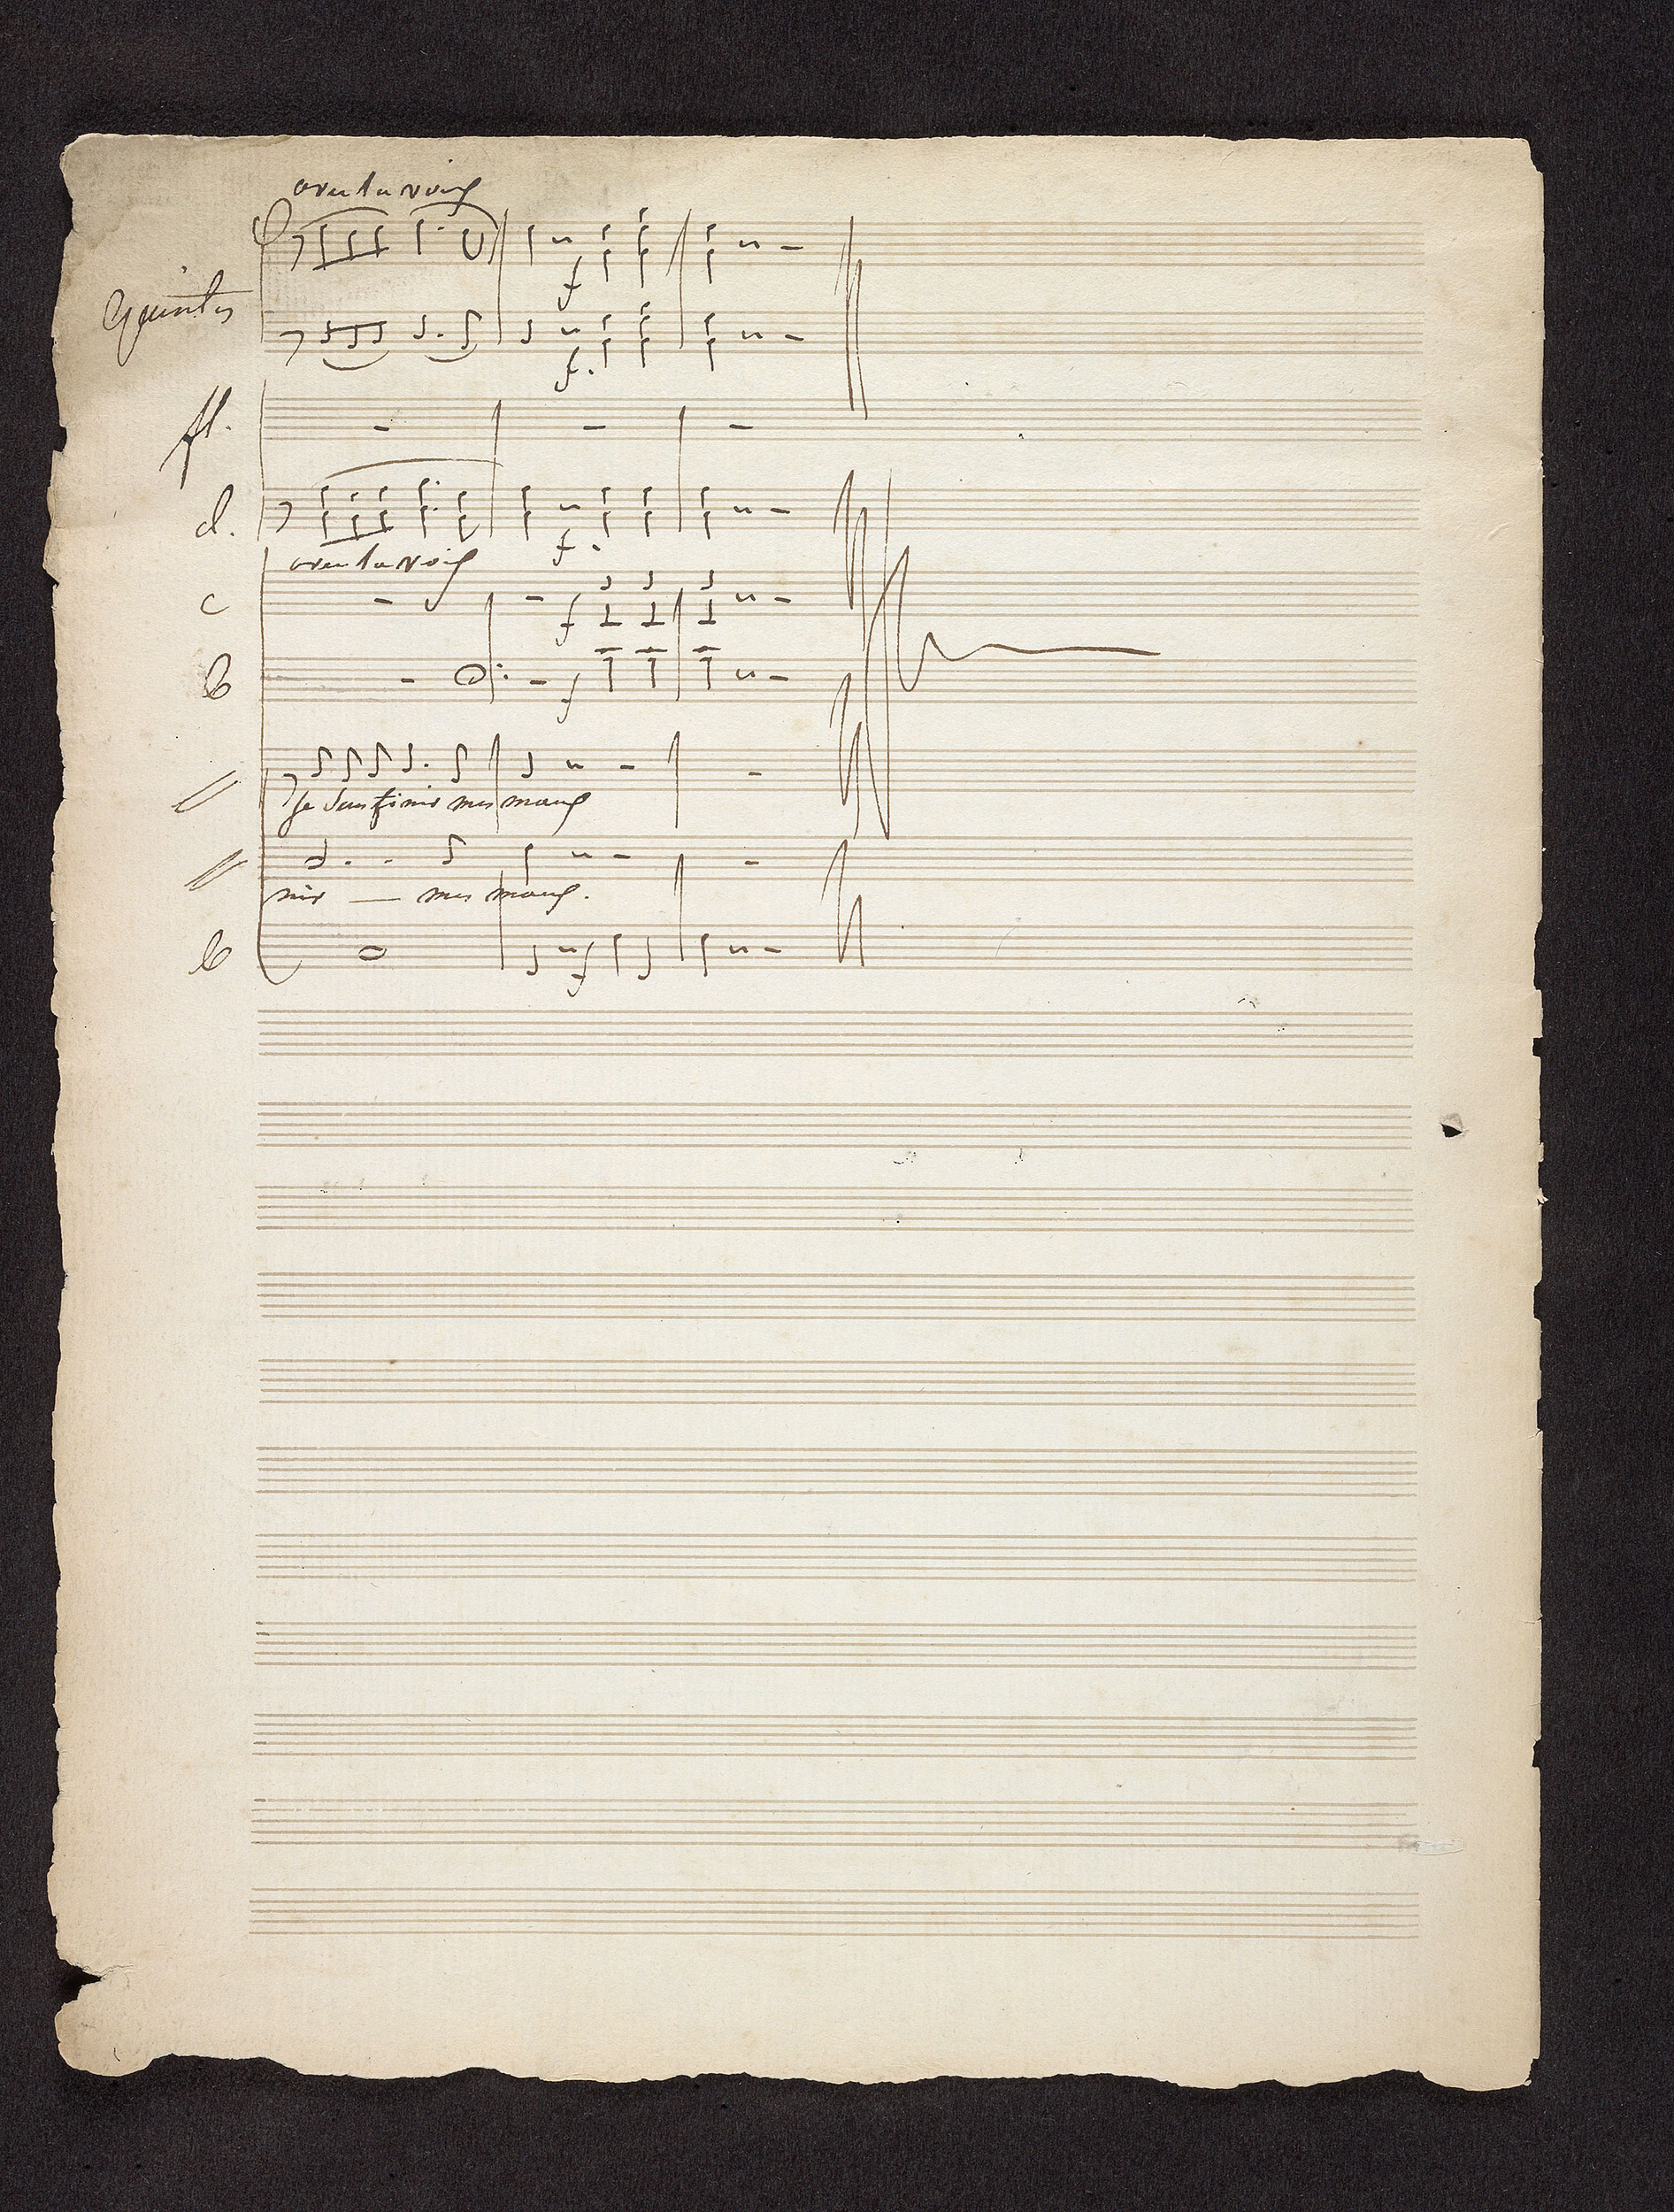 avec la voix
quintes
fl.
cl.
avec la voix
c
b
je sens finir mes maux
nir — mes maux.
b